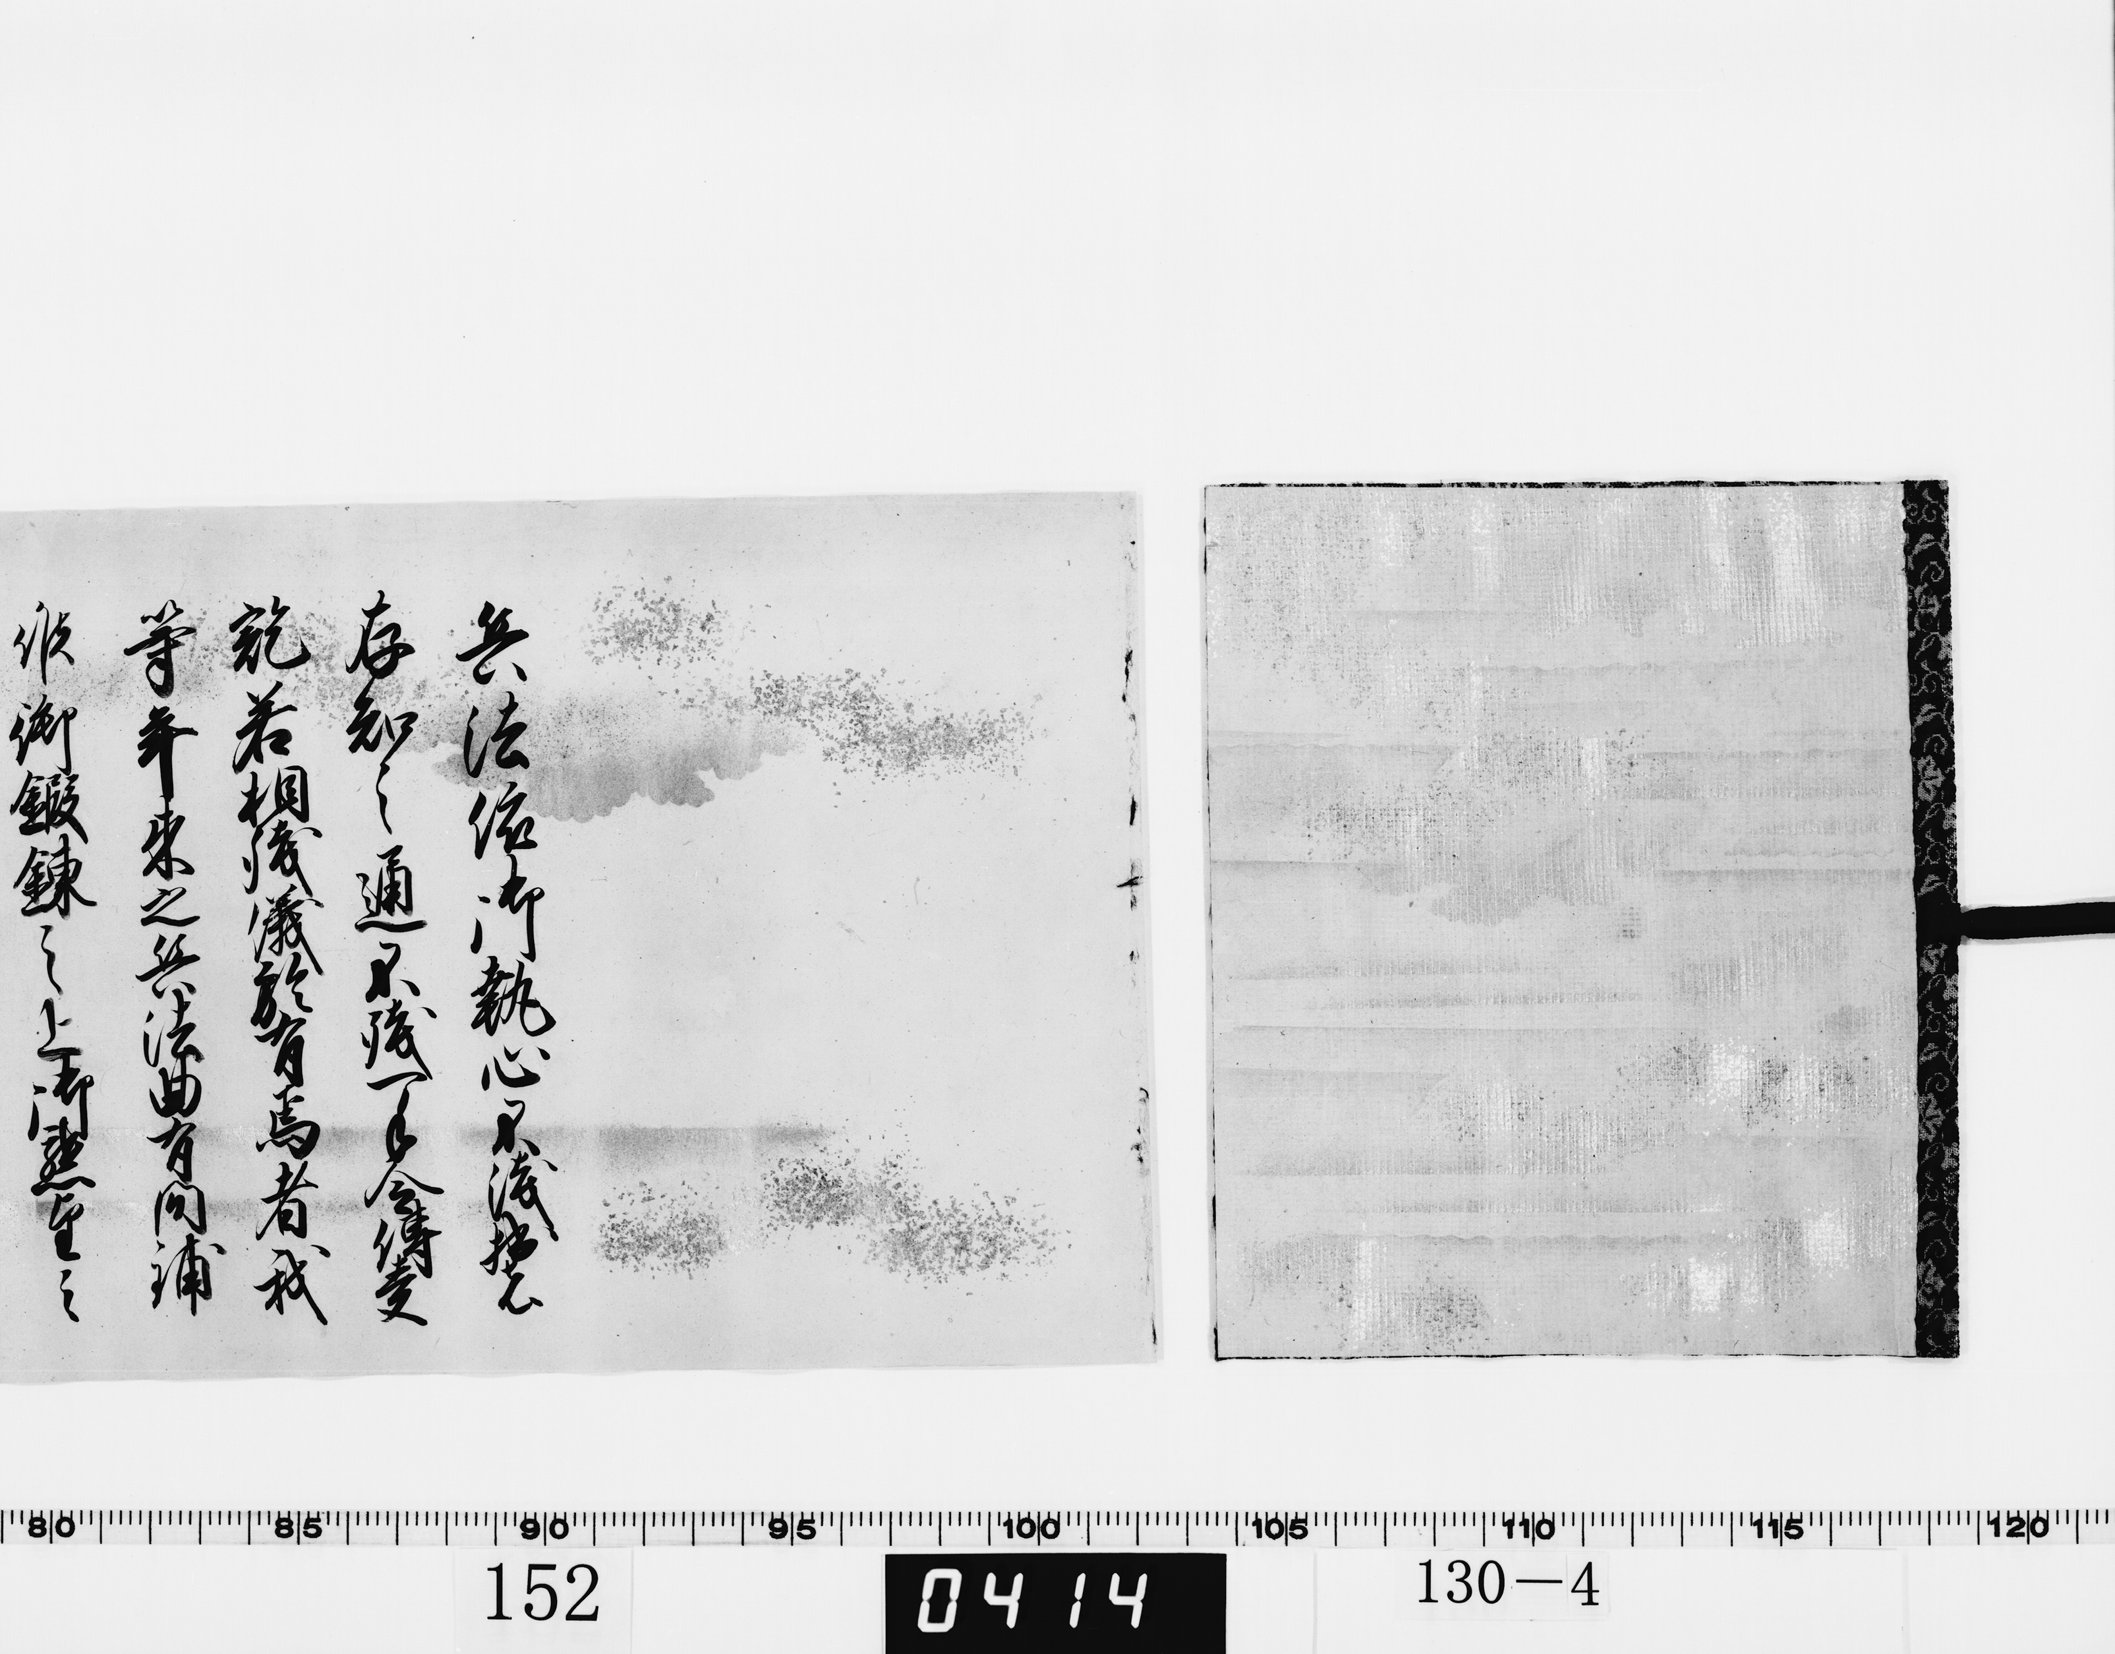 兵法依御執心不浅拙者
存知之通不残一手令傳受
訖若相残儀於有焉者我
等年来之兵法曲有間鋪
候御鍛錬之上御懇望之
80 85 90 95 100 105 110 115 120
152
0414
130-4